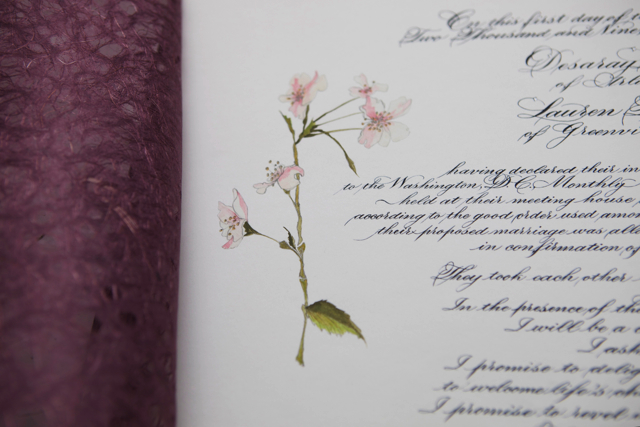 On this first day of
Two Thousand and
Desaray
of
Lauren
of
having declared their
to the Washington, D.C. Monthly
held at their meeting house,
according to the good order used
their proposed marriage was
in confirmation of
They took each other
In the presence of
I will be a
I
I promise to
to welcome life's
I promise to revel